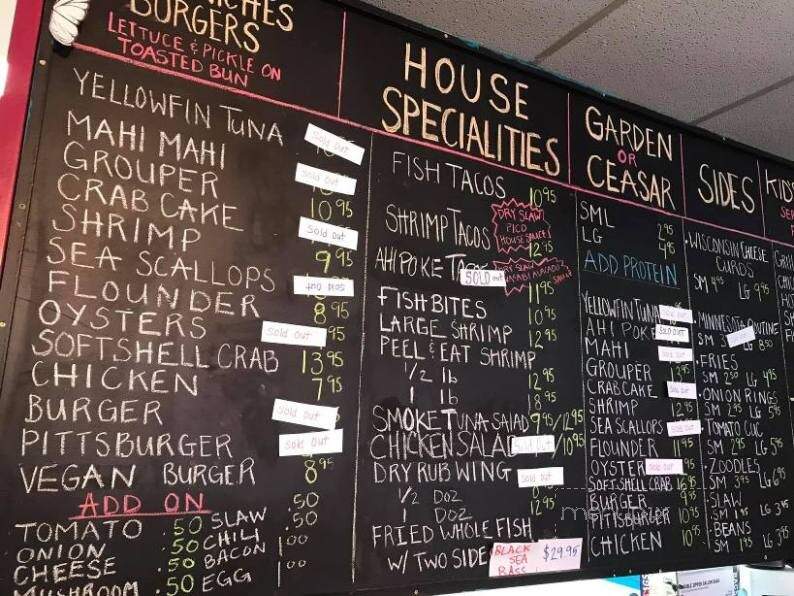 BURGERS
LETTUCE & PICKLE ON
TOASTED BUN
YELLOWFIN TUNA Sold out
MAHI MAHI Sold out
GROUPER 10 95
CRAB CAKE Sold out
SHRIMP 9 95
SEA SCALLOPS Sold out
FLOUNDER 8 95
OYSTERS Sold out 95
SOFTSHELL CRAB 13 95
CHICKEN 7 95
BURGER Sold out
PITTSBURGER Sold out
VEGAN BURGER 8 95
ADD ON
TOMATO .50
ONION .50
CHEESE .50
MUSHROOM .50
SLAW .50
CHILI .50
BACON 1 00
EGG 1 00
HOUSE
SPECIALITIES
FISH TACOS 10 95
SHRIMP TACOS 12 95
DRY SLAW
PICO
HOUSE SAUCE
AHI POKE SOLD out 11 95
FISH BITES 10 95
LARGE SHRIMP 12 95
PEEL & EAT SHRIMP
1/2 lb 12 95
1 lb 18 95
SMOKE TUNA SALAD 9 95/12 95
CHICKEN SALAD Sold out /10 95
DRY RUB WING Sold out
1/2 DOZ
1 DOZ 12 95
FRIED WHOLE FISH
W/ TWO SIDE
BLACK
SEA
BASS
$29.95
GARDEN
OR
CEASAR
SML 2 95
LG 4 95
ADD PROTEIN
YELLOWFIN TUNA Sold out
AHI POKE SOLD out
MAHI Sold out
GROUPER 13 95
CRAB CAKE Sold out
SHRIMP 12 95
SEA SCALLOPS Sold out
FLOUNDER 11 95
OYSTER Sold out 95
SOFTSHELL CRAB 16 95
BURGER 9 95
PITTSBURGER 10 95
CHICKEN 10 95
SIDES
WISCONSIN CHEESE
CURDS
SM 4 95 LG 9 95
MINNESOTA POUTINE
SM 3 LG 8 50
FRIES
SM 2 50 LG 4 95
ONION RINGS
SM 2 95 LG 5 95
TOMATO CUC
SM 2 95 LG 5 95
ZOODLES
SM 3 95 LG 6 95
SLAW
SM 1 95 LG 3 95
BEANS
SM 1 95 LG 3 95
KIDS